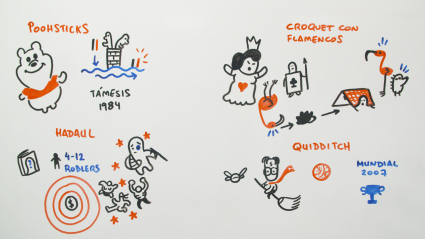 POOHSTICKS
TÁMESIS
1984
CROQUET CON
FLAMENCOS
HADAUL
?
4-12
ROBLERS
$
QUIDDITCH
MUNDIAL
2007